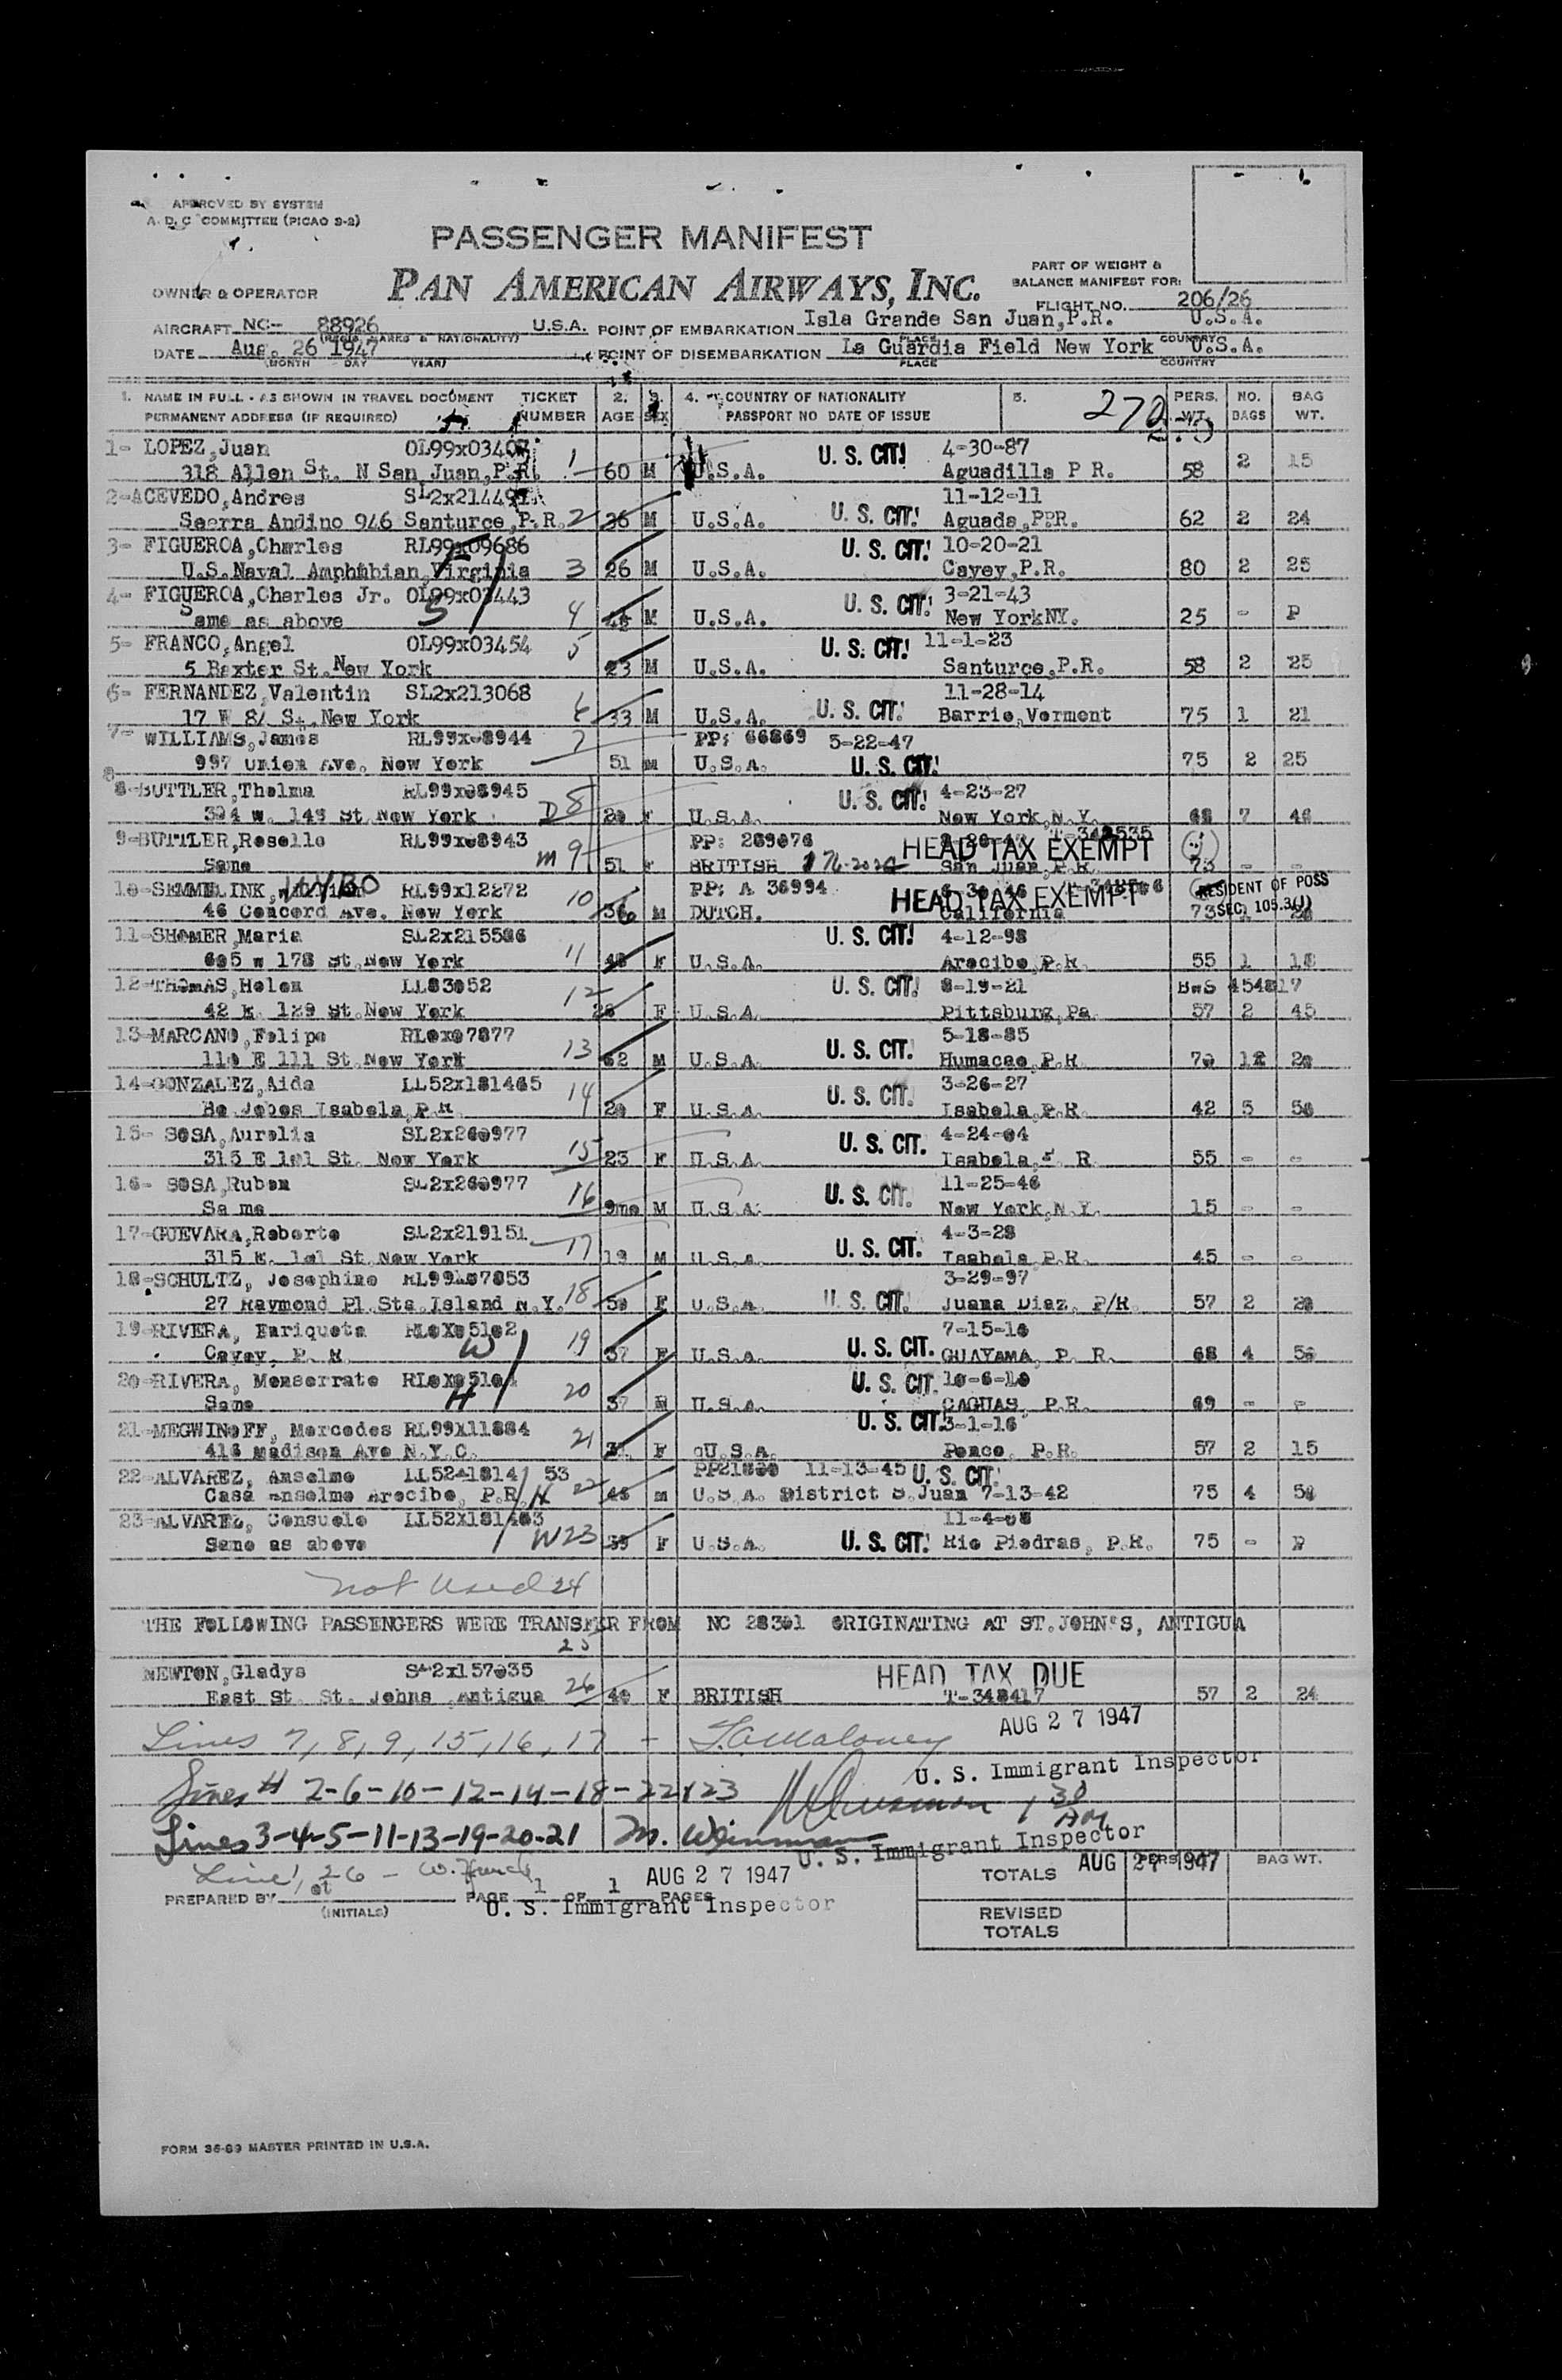 APPROVED BY SYSTEM
A. D. C COMMITTEE (PICAO S-2)
PASSENGER MANIFEST
PAN AMERICAN AIRWAYS, INC.
OWNER & OPERATOR
PART OF WEIGHT &
BALANCE MANIFEST FOR:
FLIGHT NO. 206/26
AIRCRAFT NC- 88926 U.S.A. POINT OF EMBARKATION Isla Grande San Juan, P.R. U.S.A.
(REGIS. MARKS & NATIONALITY) PLACE COUNTRY
DATE Aug. 26 1947 POINT OF DISEMBARKATION La Guardia Field New York U.S.A.
(MONTH DAY YEAR) PLACE COUNTRY
1. NAME IN FULL - AS SHOWN IN TRAVEL DOCUMENT TICKET 2. 3. 4. COUNTRY OF NATIONALITY 5. PERS. NO. BAG
PERMANENT ADDRESS (IF REQUIRED) NUMBER AGE SEX PASSPORT NO DATE OF ISSUE 270 WT. BAGS WT.
1- LOPEZ,Juan U. S. CIT! 4-30-87
318 Allen St. N San Juan,P.R. 1 60 M U.S.A. Aguadilla P R. 58 2 15
2-ACEVEDO,Andres 11-12-11
Andino 946 Santurce,P.R. 2 M U.S.A. U. S. CIT! Aguada,P.R. 62 2 24
3- FIGUEROA,Charles RL99x09686 U. S. CIT! 10-20-21
U.S.Naval Amphibian,Virginia 3 26 M U.S.A. Cayey,P.R. 80 2 25
4- FIGUEROA,Charles Jr. U. S. CIT! 3-21-43
Same as above 4 M U.S.A. New YorkNY. 25 - P
5- FRANCO,Angel OL99x03454 5 U. S. CIT! 11-1-23
5 Baxter St.New York 23 M U.S.A. Santurce,P.R. 58 2 25
6- FERNANDEZ,Valentin SL2x213068 11-28-14
17 W 84 St.New York 6 33 M U.S.A. U. S. CIT! Barrie,Vermont 75 1 21
7- WILLIAMS,James RL99x08944 7 PP: 66869 5-22-47
997 Union Ave. New York 51 M U.S.A. U. S. CIT! 75 2 25
8-BUTTLER,Thelma RL99x08945 U. S. CIT! 4-23-27
304 W. 148 St New York D 8 20 F U.S.A. New York,N.Y. 68 7 46
9-BUTTLER,Roselle RL99x08943 PP: 289076
Same m 9 51 F BRITISH HEAD TAX EXEMPT San Juan,P.R. 73 - -
10-SEMMELINK, WYBO RL99x12272 PP: A 36994
46 Concord Ave. New York 10 36 M DUTCH. HEAD TAX EXEMPT California RESIDENT OF POSS
SEC. 105.3(J)
11-SHOMER,Maria SL2x215506 U. S. CIT! 4-12-98
605 W 178 St.New York 11 F U.S.A. Arecibo,P.R. 55 1 18
12-THOMAS,Helen LL83052 U. S. CIT! 8-19-21
42 E. 129 St.New York 12 26 F U.S.A. Pittsburg,Pa. 57 2 45
13-MARCANO,Felipe RL0x07877 5-18-85
110 E 111 St.New York 13 62 M U.S.A. U. S. CIT. Humacao,P.R. 70 20
14-GONZALEZ,Aida LL52x181465 U. S. CIT. 3-26-27
Bo Jobos Isabela,P.R. 14 20 F U.S.A. Isabela,P.R. 42 5 50
15- SOSA,Aurelia SL2x260977 4-24-04
315 E 101 St. New York 15 23 F U.S.A. U. S. CIT. Isabela,P R 55 - -
16- SOSA,Ruben SL2x260977 11-25-46
Same 16 9mo M U.S.A. U. S. CIT. New York,N.Y. 15 - -
17-GUEVARA,Roberto SL2x219151 4-3-28
315 E. 101 St.New York 17 19 M U.S.A. U. S. CIT. Isabela,P.R. 45 - -
18-SCHULTZ, Josephine RL99X07853 3-29-97
27 Raymond Pl.Sta.Island N.Y. 18 50 F U.S.A. U. S. CIT. Juana Diaz, P/R. 57 2 20
19-RIVERA, Enriqueta RL0X05102 7-15-10
Cayey, P. R. W 19 37 F U.S.A. U. S. CIT. GUAYAMA, P. R. 68 4 50
20-RIVERA, Monserrate U. S. CIT. 10-6-10
Same H 20 37 M U.S.A. CAGUAS, P.R. 69 - -
21-MEGWINOFF, Mercedes RL99X11884 U. S. CIT. 3-1-16
416 Madison Ave N.Y.C. 21 F U.S.A. Ponce, P.R. 57 2 15
22-ALVAREZ, Anselmo 53 11-13-45 U. S. CIT.
Casa Anselmo Arecibo, P.R. H 22 M U.S.A. District S.Juan 7-13-42 75 4
23-ALVAREZ, Consuelo
Same as above W 23 F U.S.A. U. S. CIT! Rio Piedras, P.R. 75 - P
not used 24
THE FOLLOWING PASSENGERS WERE TRANSFER FROM NC 28301 ORIGINATING AT ST.JOHN'S, ANTIGUA
25
NEWTON,Gladys SL2x157035 HEAD TAX DUE
East St. St. Johns Antigua 26 40 F BRITISH T-348417 57 2 24
Lines 7, 8, 9, 15, 16, 17 - Maloney AUG 27 1947
U. S. Immigrant Inspector
Lines # 2-6-10-12-14-18-22+23 1 30 AM
Lines 3-4-5-11-13-19-20-21 M. Weinman
U. S. Immigrant Inspector
Line 1, 26 - W. AUG 27 1947 TOTALS AUG 27 1947 PERS. BAG WT.
PREPARED BY et PAGE 1 OF 1 PAGES
(INITIALS) U. S. Immigrant Inspector
REVISED
TOTALS
FORM 36-89 MASTER PRINTED IN U.S.A.